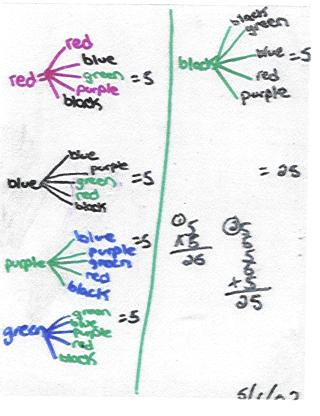 red
blue
red
green
purple
black
=5
blue
purple
blue
green
red
black
=5
blue
purple
purple
green
red
black
=5
green
blue
green
purple
red
black
=5
black
green
black
blue
red
purple
=5
=25
① 5
x 5
25
② 5
5
5
5
+ 5
25